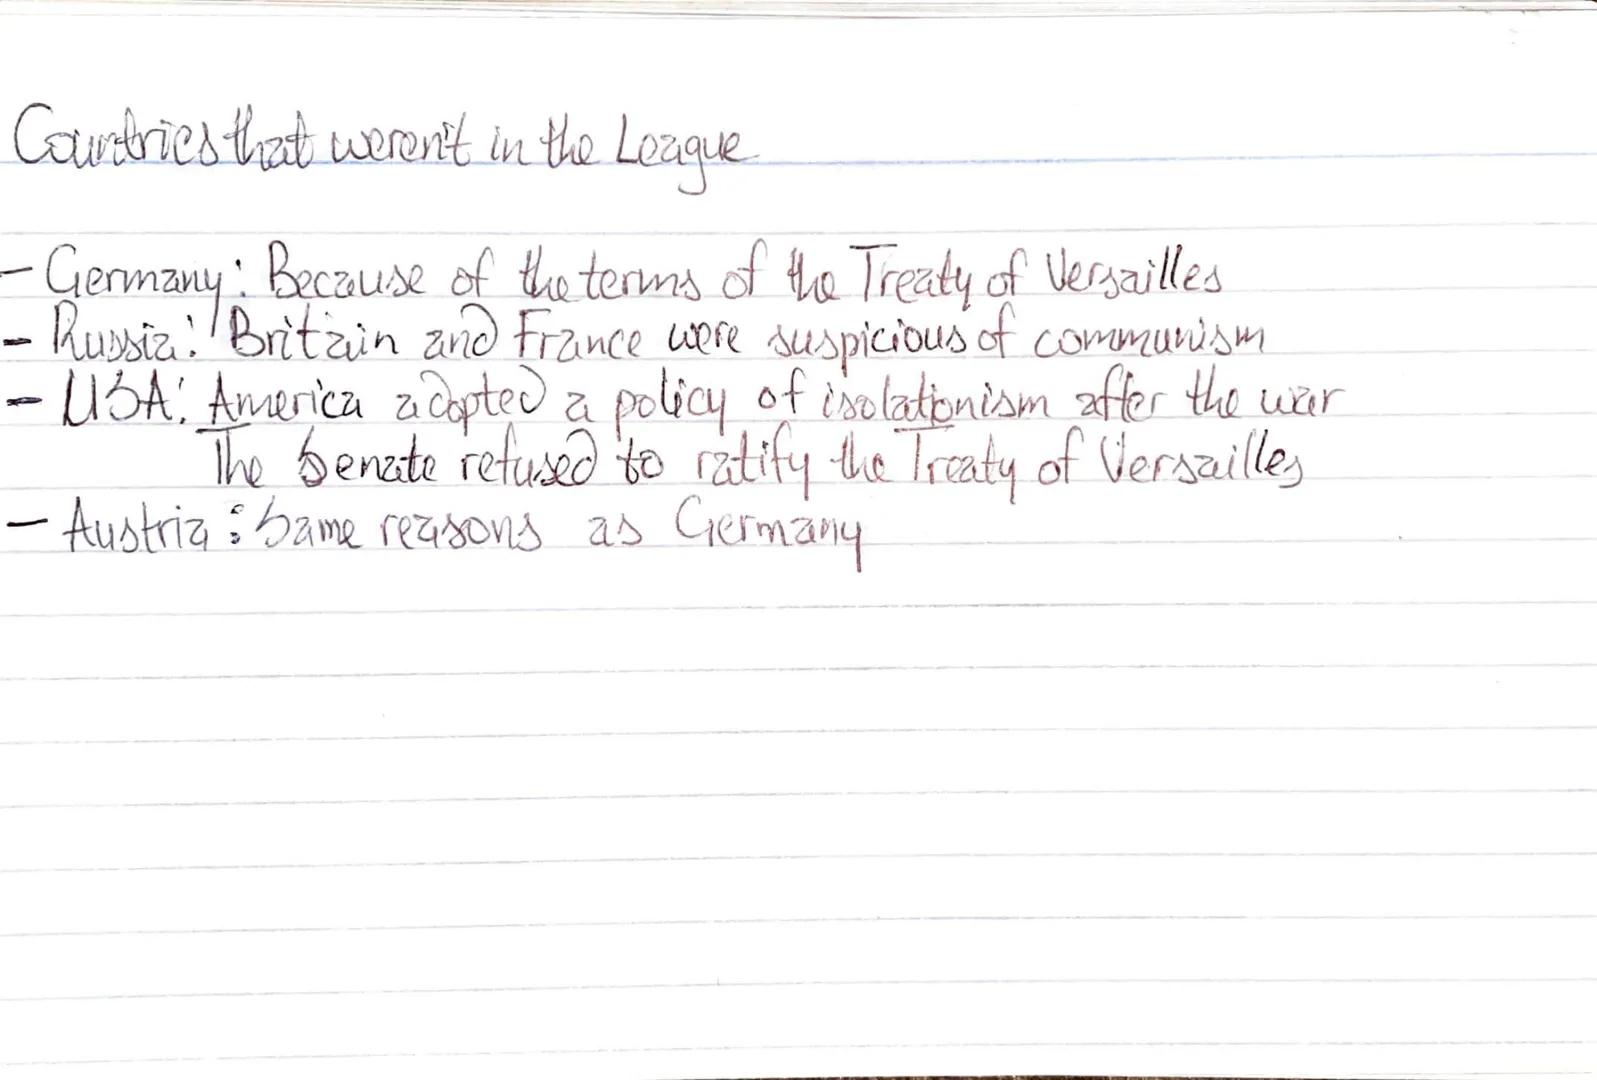 Countries that weren't in the League
- Germany: Because of the terms of the Treaty of Versailles
- Russia: Britain and France were suspicious of communism
- USA: America adopted a policy of isolationism after the war
The Senate refused to ratify the Treaty of Versailles
- Austria: Same reasons as Germany